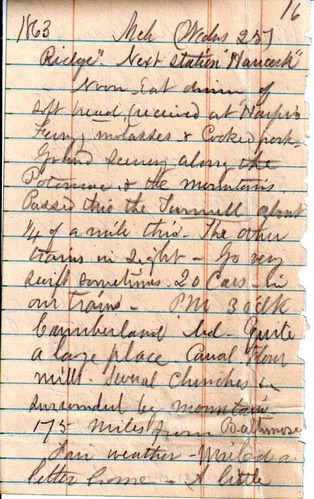 16
1863 Mch (Weds 25)
Ridge". Next station "Hancock"
Noon Eat dinner of
soft bread (received at Harpers
Ferry) molasses & Cooked pork
Grand Scenery along the
Potomac & the mountains.
Passed thro the Tunnell about
1/4 of a mile thro. The other
trains in sight - Go very
swift sometimes. 20 Cars - in
our trains - PM 3 oclk
Cumberland Md - Quite
a large place Canal flour
mills. Several Churches -
surrounded by mountain
175 miles from Baltimore
Fair weather - Mailed a
letter home - A little